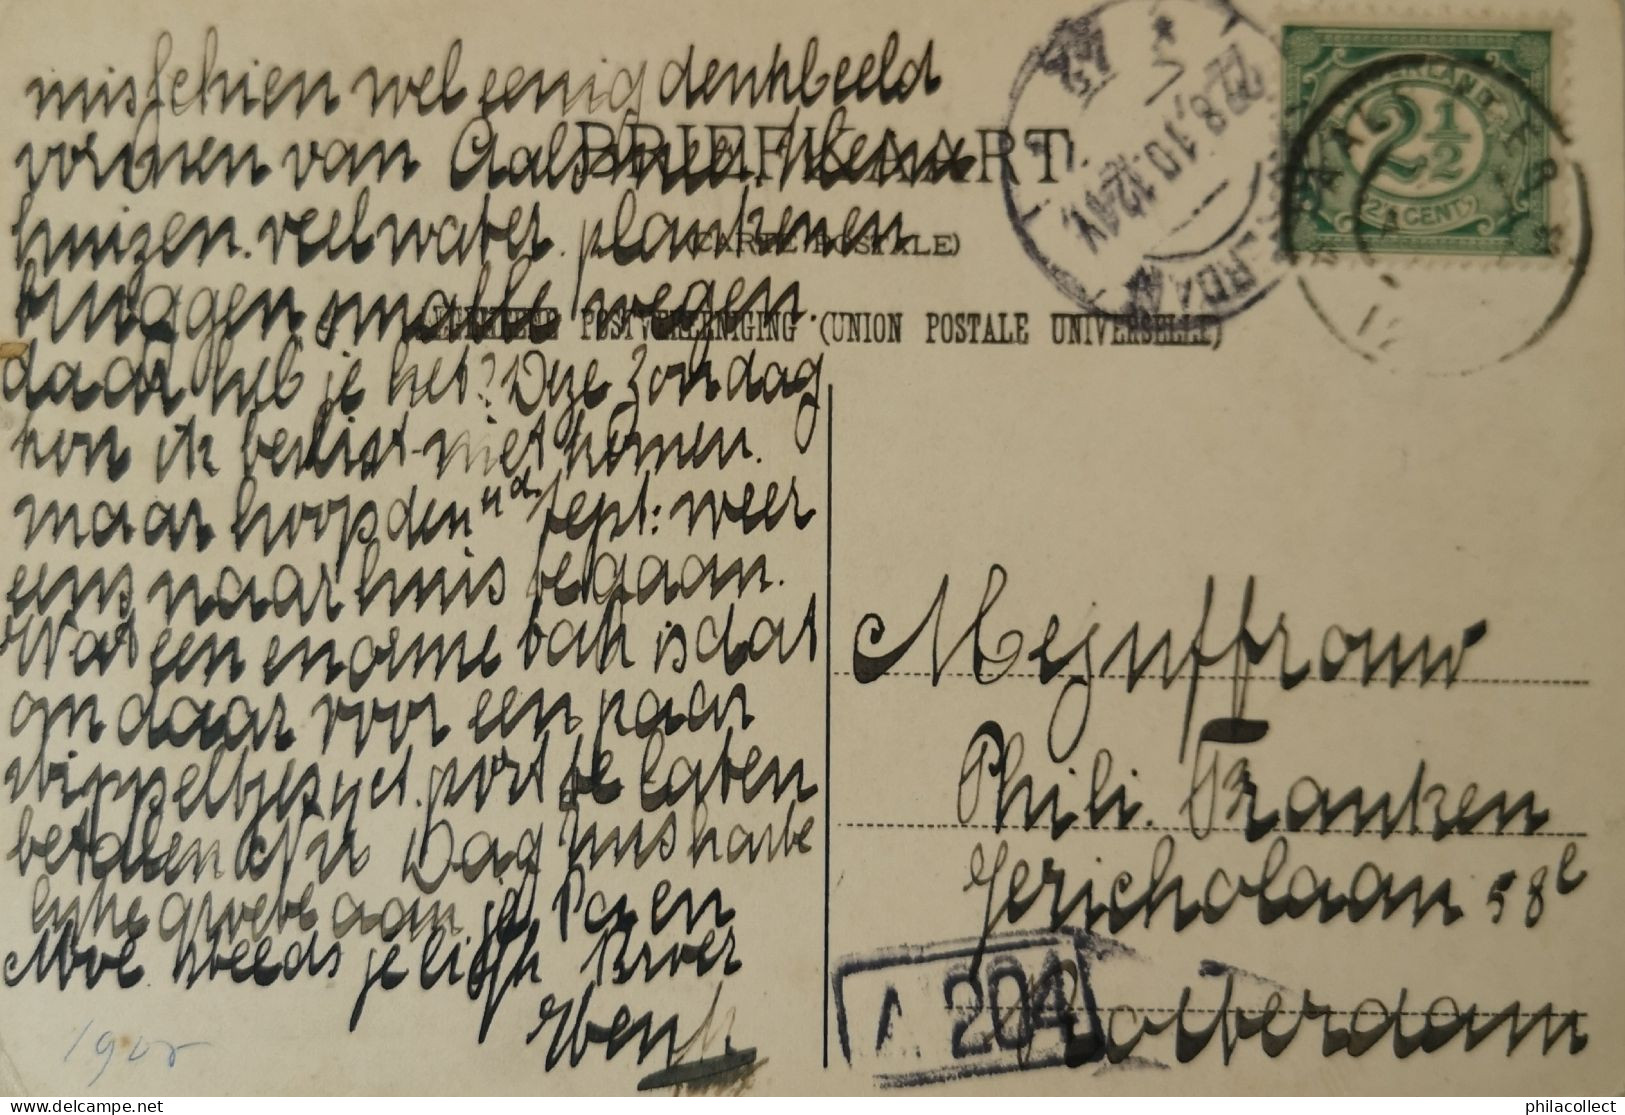 misschien wel eenig denkbeeld
vormen van Aalsmeer kleine
huizen. veel water. planken en
bruggen smalle wegen.
daar heb je het? Deze Zondag
kon ik beslist niet komen.
maar hoop den 4d Sept: weer
eens naar huis te gaan.
Wat een enorme bak is dat
om daar voor een paar
port te laten
betalen Nu Dag Zus harte
lijke groete aan je Pa en
Moe steeds je liefh Broer
Henk
1905
BRIEFKAART.
(CARTE POSTALE)
ALGEMEENE POSTVEREENIGING (UNION POSTALE UNIVERSELLE)
NEDERLAND
2½
2½ CENT
AALSMEER
ROTTERDAM
28.8.10.12AV.
Mejuffrouw
Phili. Franken
Jericholaan 58
Rotterdam
A 204
philacollect